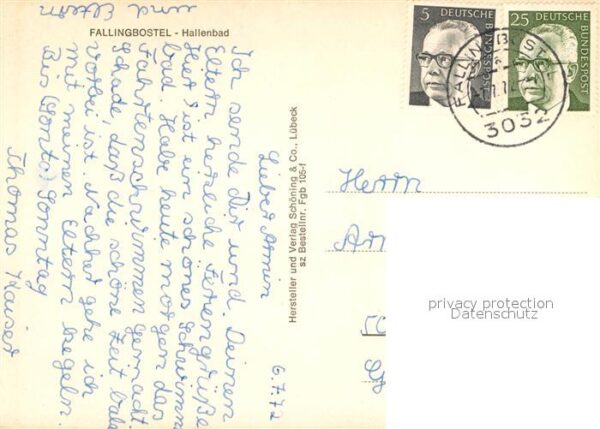 und Eltern
FALLINGBOSTEL - Hallenbad
6.7.72
Lieber Armin
Ich sende Dir und Deinen
Eltern herzliche Feriengrüße
Hier ist ein schönes Schwimm
bad. Habe heute morgen das
Fahrtenschwimmen gemacht.
Schade, daß die schöne Zeit bald
vorbei ist. Nachher gehe ich
mit meinen Eltern kegeln.
Bis Sonntag
Thomas Kaiser
Hersteller und Verlag Schöning & Co., Lübeck
sz Bestellnr. Fgb 105-f
5 DEUTSCHE BUNDESPOST
25 DEUTSCHE BUNDESPOST
FALLINGBOSTEL
3032
Herrn
privacy protection
Datenschutz